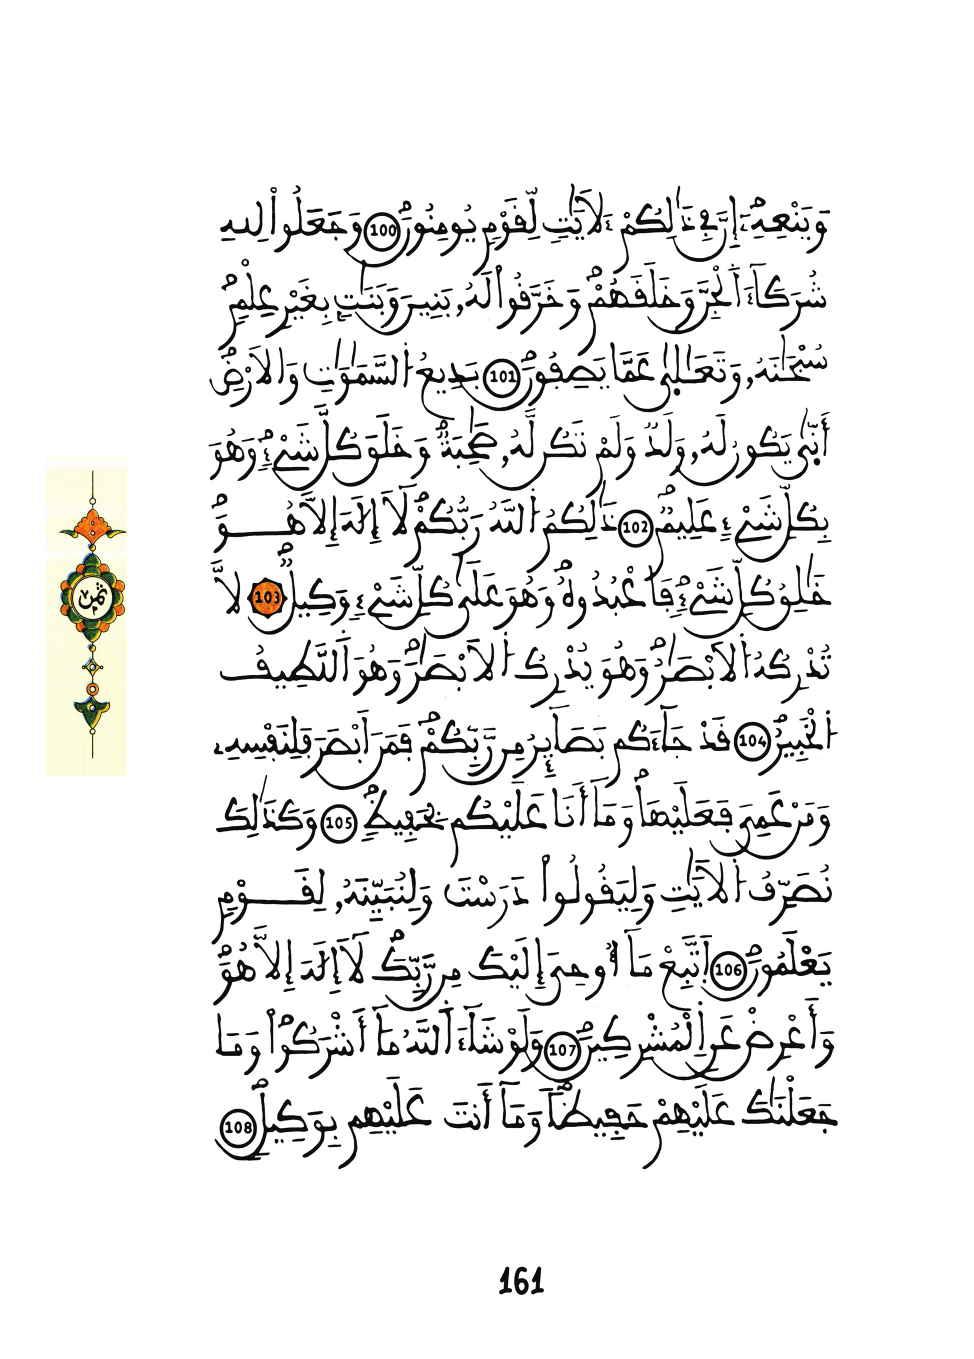 وَيَنْعِهِۦٓۖ إِنَّ فِے ذَٰلِكُمْ ءَلَايَٰتٖ لِّقَوْمٖ يُومِنُونَۖ 100 وَجَعَلُواْ لِلهِ
شُرَكَآءَ اَ۬لْجِنَّ وَخَلَقَهُمْۖ وَخَرَّقُواْ لَهُۥ بَنِينَ وَبَنَٰتِۢ بِغَيْرِ عِلْمٖۖ
سُبْحَٰنَهُۥ وَتَعَٰلَىٰ عَمَّا يَصِفُونَۖ 101 بَدِيعُ اُ۬لسَّمَٰوَٰتِ وَالَارْضِۖ
أَنّ۪يٰ يَكُونُ لَهُۥ وَلَدٞ وَلَمْ تَكُن لَّهُۥ صَٰحِبَةٞۖ وَخَلَقَ كُلَّ شَےْءٖۖ وَهُوَ
بِكُلِّ شَےْءٍ عَلِيمٞۖ 102 ذَٰلِكُمُ اُ۬للَّهُ رَبُّكُمْۖ لَآ إِلَٰهَ إِلَّا هُوَۖ
خَٰلِقُ كُلِّ شَےْءٖۖ فَاعْبُدُوهُۖ وَهُوَ عَلَىٰ كُلِّ شَےْءٖ وَكِيلٞۖ 103 لَّا
تُدْرِكُهُ اُ۬لَابْصَٰرُۖ وَهُوَ يُدْرِكُ اُ۬لَابْصَٰرَۖ وَهُوَ اَ۬للَّطِيفُ
اُ۬لْخَبِيرُۖ 104 قَدْ جَآءَكُم بَصَآئِرُ مِن رَّبِّكُمْۖ فَمَنَ اَبْصَرَ فَلِنَفْسِهِۦ
وَمَنْ عَمِيَ فَعَلَيْهَاۖ وَمَآ أَنَا عَلَيْكُم بِحَفِيظٖۖ 105 وَكَذَٰلِكَ
نُصَرِّفُ اُ۬لَايَٰتِ وَلِيَقُولُواْ دَرَسْتَ وَلِنُبَيِّنَهُۥ لِقَوْمٖ
يَعْلَمُونَۖ 106 اَ۪تَّبِعْ مَآ أُوحِيَ إِلَيْكَ مِن رَّبِّكَۖ لَآ إِلَٰهَ إِلَّا هُوَۖ
وَأَعْرِضْ عَنِ اِ۬لْمُشْرِكِينَۖ 107 وَلَوْ شَآءَ اَ۬للَّهُ مَآ أَشْرَكُواْۖ وَمَا
جَعَلْنَٰكَ عَلَيْهِمْ حَفِيظاٗۖ وَمَآ أَنتَ عَلَيْهِم بِوَكِيلٖۖ 108
ثمن
161